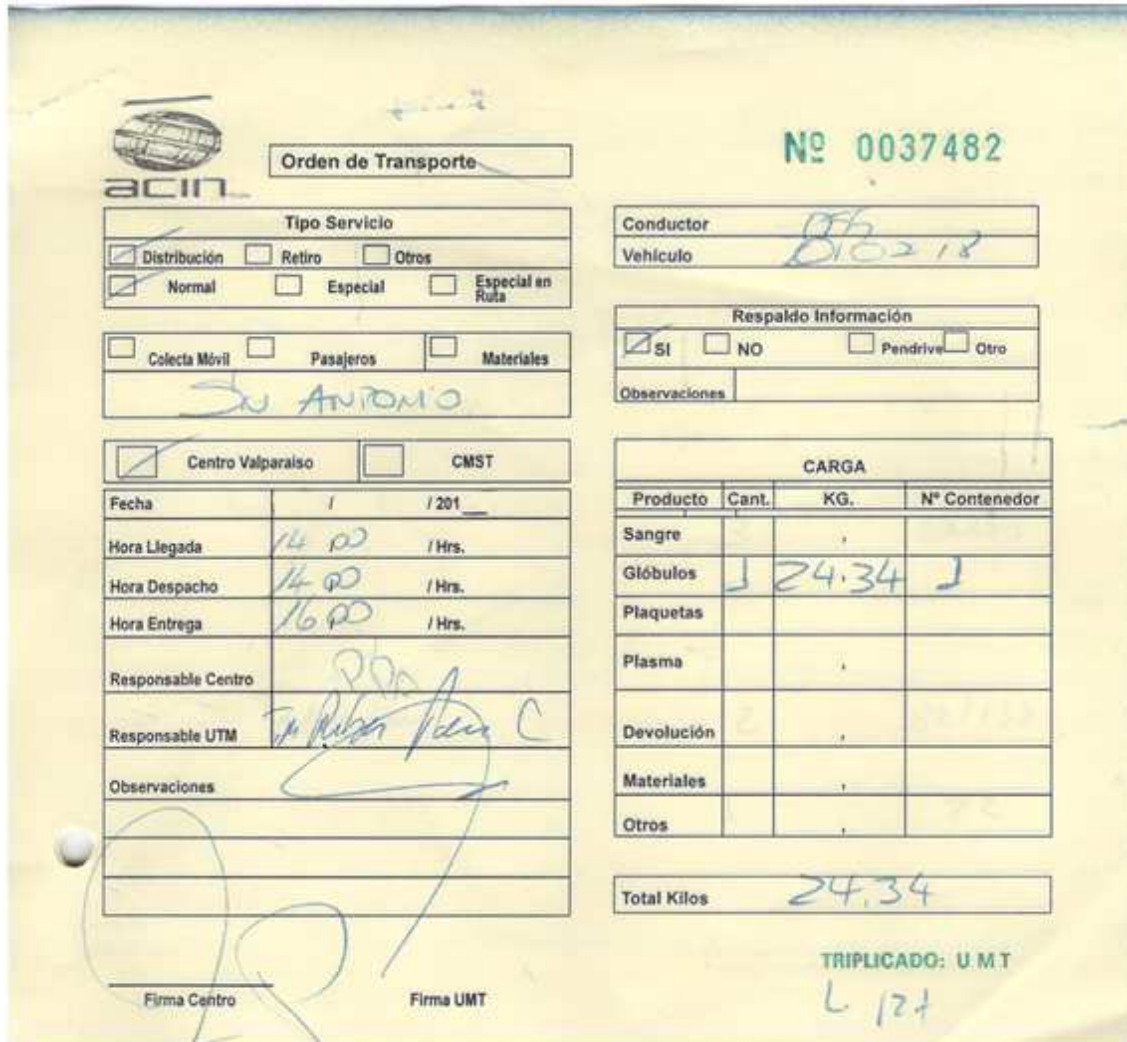 acin
Orden de Transporte
Nº 0037482
Tipo Servicio
Distribución Retiro Otros
Normal Especial Especial en Ruta
Colecta Móvil Pasajeros Materiales
SN ANTONIO
Centro Valparaiso CMST
Fecha / / 201__
Hora Llegada 14 00 / Hrs.
Hora Despacho 14 00 / Hrs.
Hora Entrega 16 00 / Hrs.
Responsable Centro
Responsable UTM
Observaciones
Firma Centro Firma UMT
Conductor
Vehículo
Respaldo Información
SI NO Pendrive Otro
Observaciones
CARGA
Producto Cant. KG. Nº Contenedor
Sangre ,
Glóbulos 1 24.34 1
Plaquetas
Plasma ,
Devolución ,
Materiales ,
Otros ,
Total Kilos 24.34
TRIPLICADO: U M T